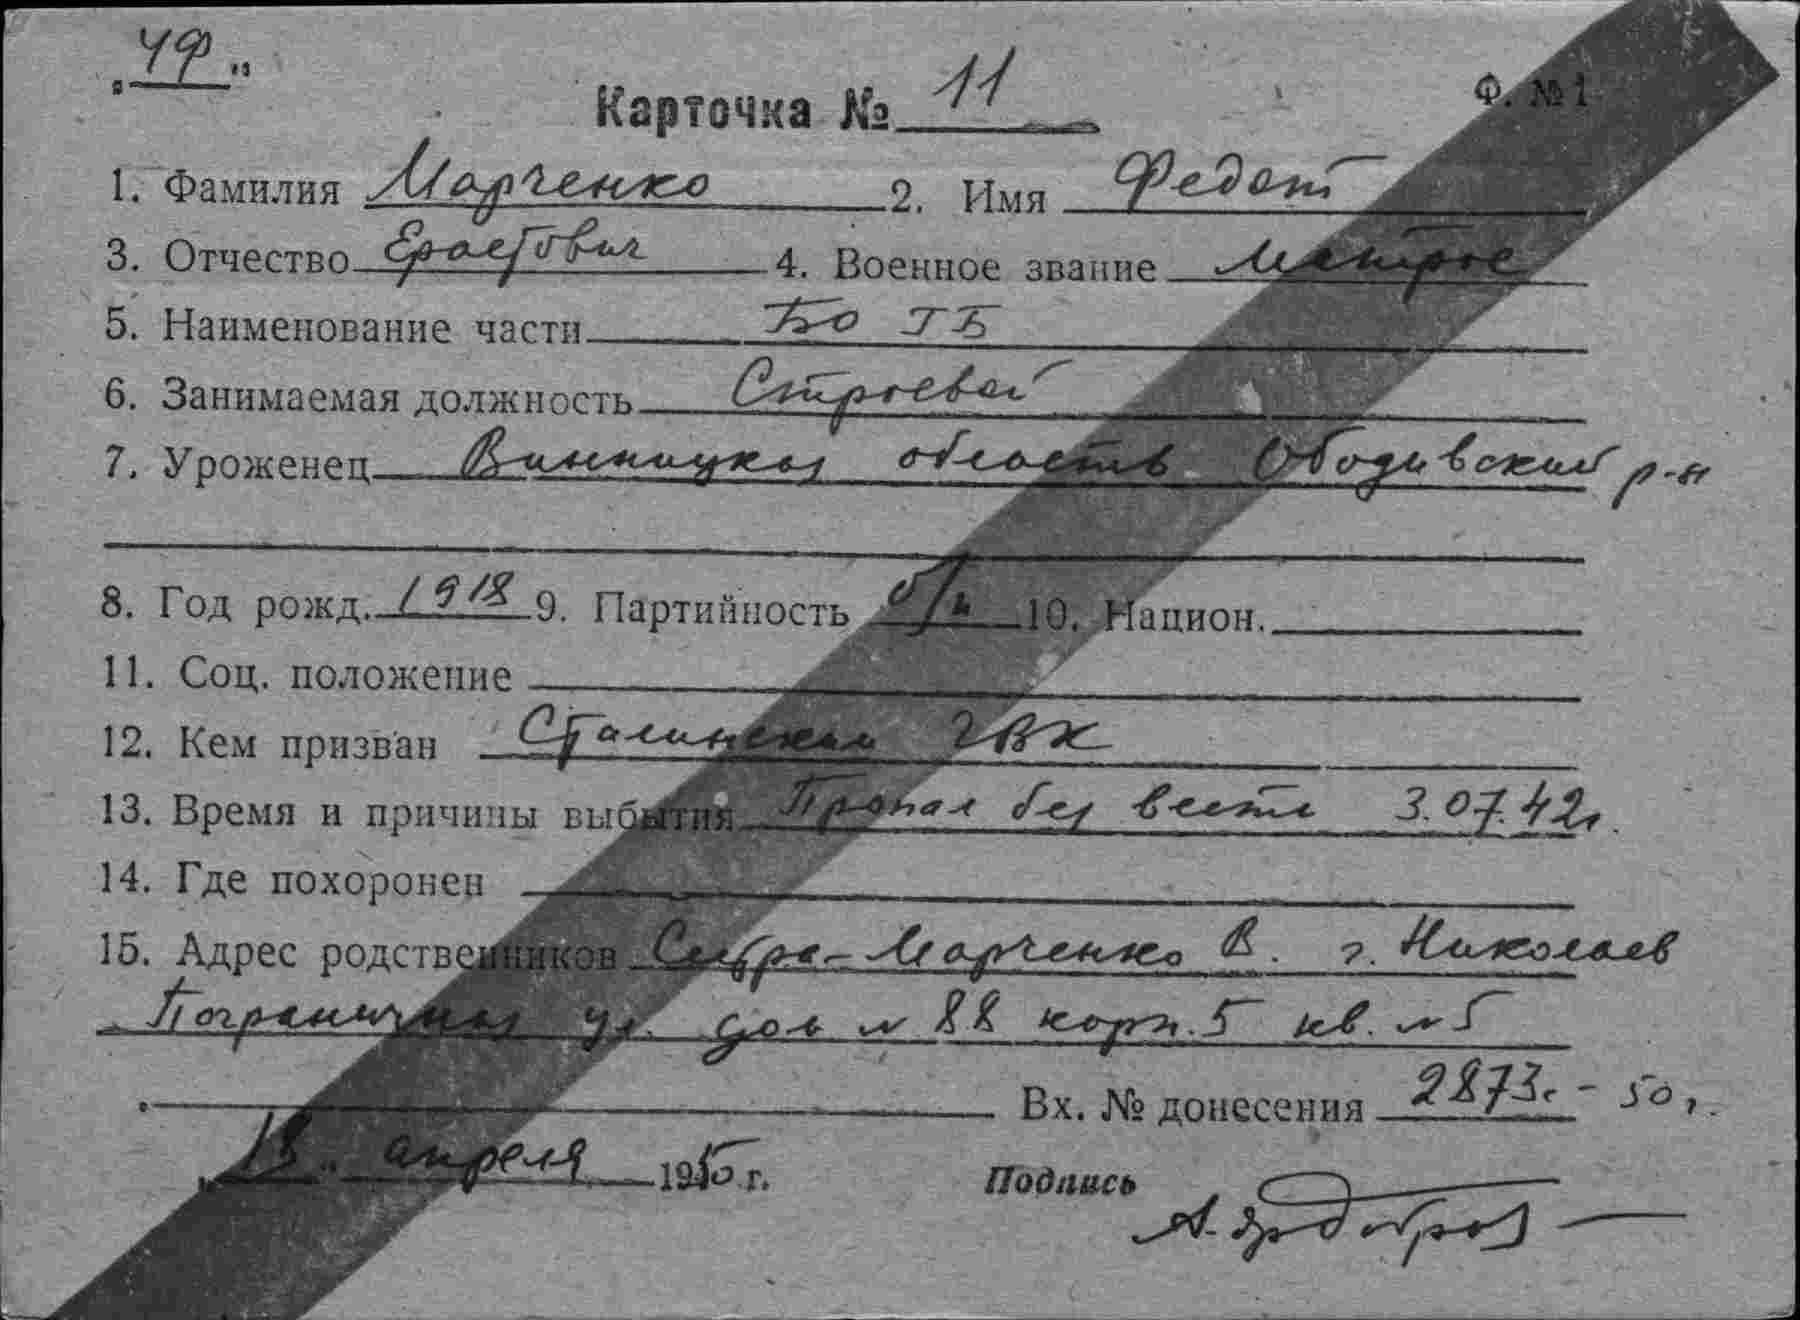 „ЧФ"
Карточка № 11
Ф. № 1
1. Фамилия Марченко 2. Имя Федот
3. Отчество Ерастович 4. Военное звание Матрос
5. Наименование части БО ГБ
6. Занимаемая должность Строевой
7. Уроженец Винницкая область Ободивский р-н
8. Год рожд. 1918 9. Партийность б/п 10. Национ.
11. Соц. положение
12. Кем призван Сталинским ГВК
13. Время и причины выбытия Пропал без вести 3.07.42г.
14. Где похоронен
15. Адрес родственников Сестра - Марченко В. г. Николаев
Пограничная ул. дом № 88 корп. 5 кв. № 5
Вх. № донесения 2873с - 50г.
„18" апреля 1950 г.
Подпись